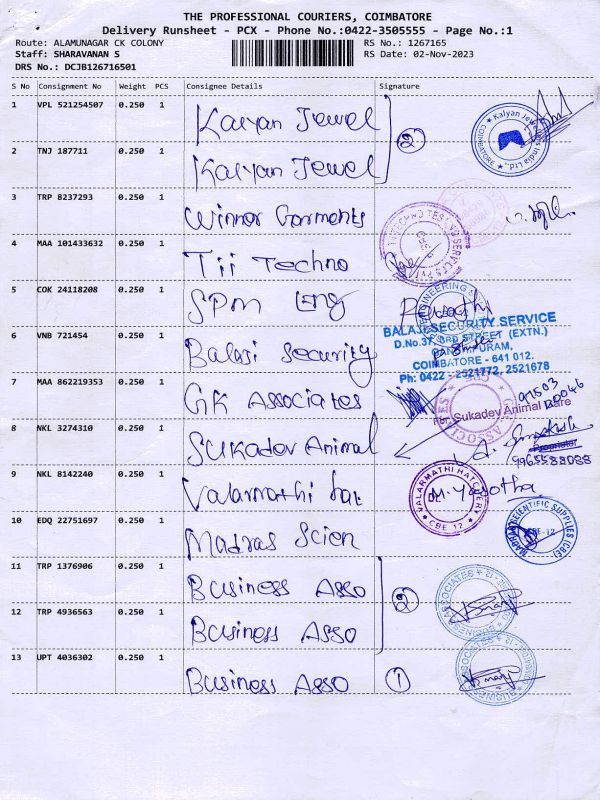 THE PROFESSIONAL COURIERS, COIMBATORE
Delivery Runsheet - PCX - Phone No.:0422-3505555 - Page No.:1
Route: ALAMUNAGAR CK COLONY RS No.: 1267165
Staff: SHARAVANAN S RS Date: 02-Nov-2023
DRS No.: DCJB126716501
S No Consignment No Weight PCS Consignee Details Signature
1 VPL 521254507 0.250 1 Kalyan Jewel
2 TNJ 187711 0.250 1 Kalyan Jewel
2
Kalyan Jewellers India Ltd., COIMBATORE
3 TRP 8237293 0.250 1 Winner Garments
4 MAA 101433632 0.250 1 Tii Techno
5 COK 24118208 0.250 1 SPM Eng
6 VNB 721454 0.250 1 Balaji Security
BALAJI SECURITY SERVICE
D.No.37, 3RD STREET (EXTN.)
COIMBATORE - 641 012.
Ph: 0422 - 2521772, 2521678
7 MAA 862219353 0.250 1 GK Associates
8 NKL 3274310 0.250 1 Sukadev Animal
For Sukadev Animal Care
Proprietor
9965588088
9 NKL 8142240 0.250 1 Valarmathi hat
VALARMATHI HATCHERY CBE-12
10 EDQ 22751697 0.250 1 Madras Scien
MADRAS SCIENTIFIC SUPPLIES (CBE) CBE-12
11 TRP 1376906 0.250 1 Business Asso
12 TRP 4936563 0.250 1 Business Asso
2
13 UPT 4036302 0.250 1 Business Asso 1